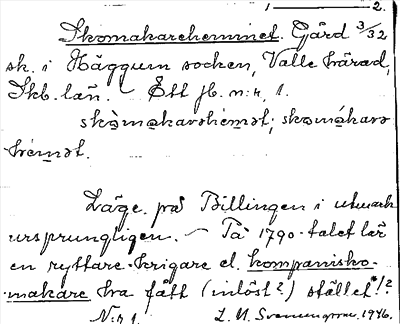 1 — 2.
Skomakarehemmet. Gård 3/32
sk. i Häggum socken, Valle härad,
Skb. län. — Ett jb. n:r, 1.
hemət.
Läge. på Billingen i utmark
ursprungligen. — På 1790-talet lär
en ryttare-krigare el. kompanisko-
makare ha fått (inlöst?) stället*!?
N:r 1. L. M. Svenungsson. 1946.